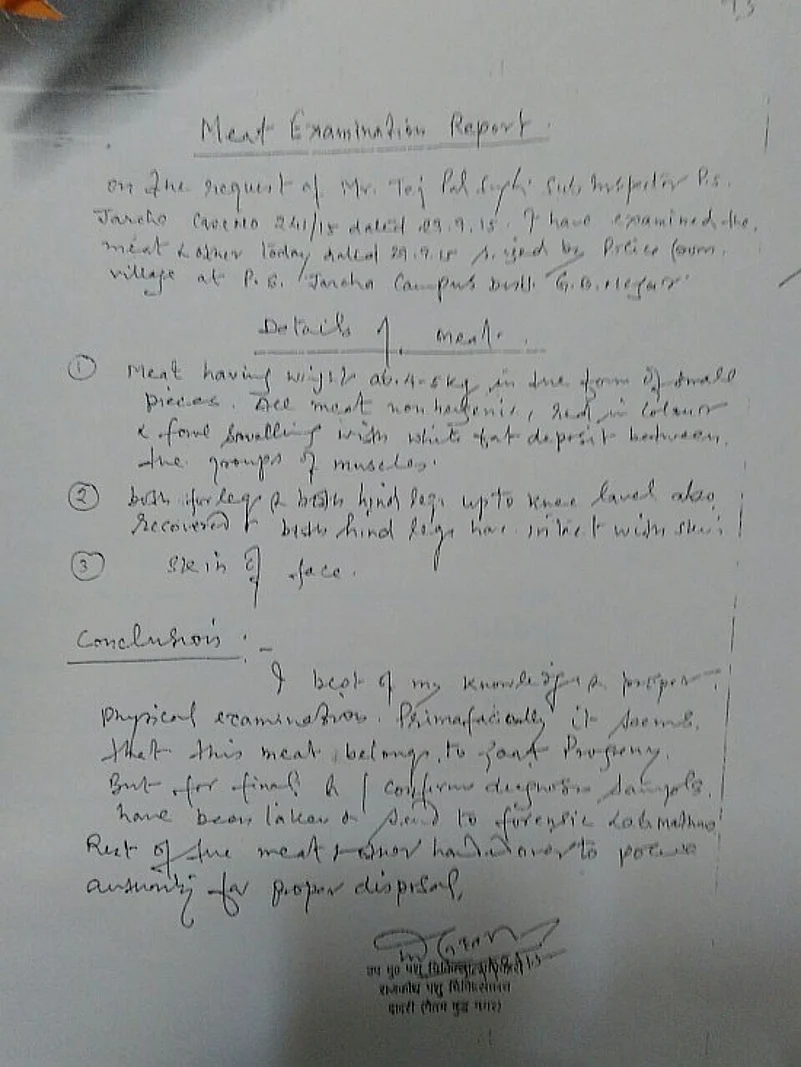 Meat Examination Report.
on the request of Mr. Tej Pal Singh Sub Inspector P.S.
Jarcha Case No 241/15 dated 29.9.15. I have examined the
meat & other today dated 29.9.15 by Police from
village at P.S. Jarcha Campus Distt. G.B. Nagar
Details of meat.
① Meat having wight ab. 4-5 kg in the form of small
pieces. All meat non hygenic, red in colour
& foul smelling with white fat deposit between
the groups of muscles.
② both for legs & both hind legs upto knee laval also
recovered & both hind legs have intect with skin
③ skin of face.
Conclusion :-
I best of my knowledge & proper
physical examination. Primafacienly it seems
that this meat belongs to goat Progeny.
But for final & confirm diagnosis sampls
have been taken & send to forensic Lab mathura
Rest of the meat & other handover to police
authority for proper disposal,
उप मु० पशु चिकित्साधिकारी
राजकीय पशु चिकित्सालय
दादरी (गौतम बुद्ध नगर)